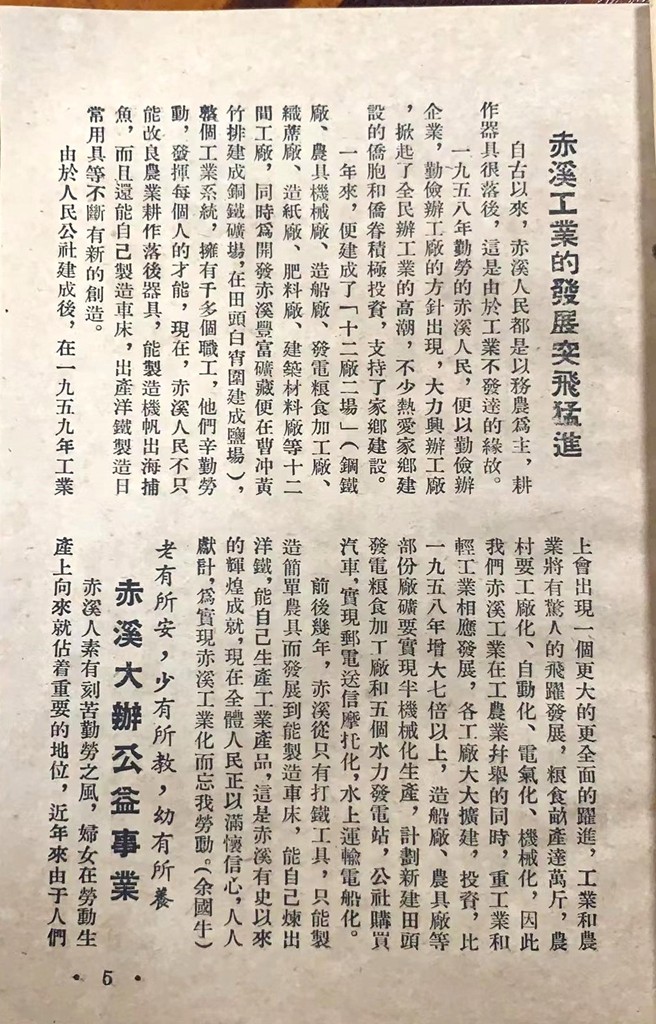 赤溪工業的發展突飛猛進
自古以來，赤溪人民都是以務農爲主，耕
作器具很落後，這是由於工業不發達的緣故。
一九五八年勤勞的赤溪人民，便以勤儉辦
企業，勤儉辦工廠的方針出現，大力興辦工廠
，掀起了全民辦工業的高潮，不少熱愛家鄉建
設的僑胞和僑眷積極投資，支持了家鄉建設。
一年來，便建成了「十二廠二場」（鋼鐵
廠、農具機械廠、造船廠、發電粮食加工廠、
織蓆廠、造紙廠、肥料廠、建築材料廠等十二
間工廠，同時爲開發赤溪豐富礦藏便在曹冲黃
竹排建成銅鐵礦場，在田頭白宵圍建成鹽場），
整個工業系統，擁有千多個職工，他們辛勤勞
動，發揮每個人的才能，現在，赤溪人民不只
能改良農業耕作落後器具，能製造機帆出海捕
魚，而且還能自己製造車床，出產洋鐵製造日
常用具等不斷有新的創造。
由於人民公社建成後，在一九五九年工業
上會出現一個更大的更全面的躍進，工業和農
業將有驚人的飛躍發展，粮食畝產達萬斤，農
村要工廠化、自動化、電氣化、機械化，因此
我們赤溪工業在工農業幷舉的同時，重工業和
輕工業相應發展，各工廠大大擴建，投資，比
一九五八年增大七倍以上，造船廠、農具廠等
部份廠礦要實現半機械化生產，計劃新建田頭
發電粮食加工廠和五個水力發電站，公社購買
汽車，實現郵電送信摩托化，水上運輸電船化。
前後幾年，赤溪從只有打鐵工具，只能製
造簡單農具而發展到能製造車床，能自己煉出
洋鐵，能自己生產工業產品，這是赤溪有史以來
的輝煌成就，現在全體人民正以滿懷信心，人人
獻計，爲實現赤溪工業化而忘我勞動。（余國牛）
老有所安，少有所教，幼有所養
赤溪大辦公益事業
赤溪人素有刻苦勤勞之風，婦女在勞動生
產上向來就佔着重要的地位，近年來由于人們
•5•